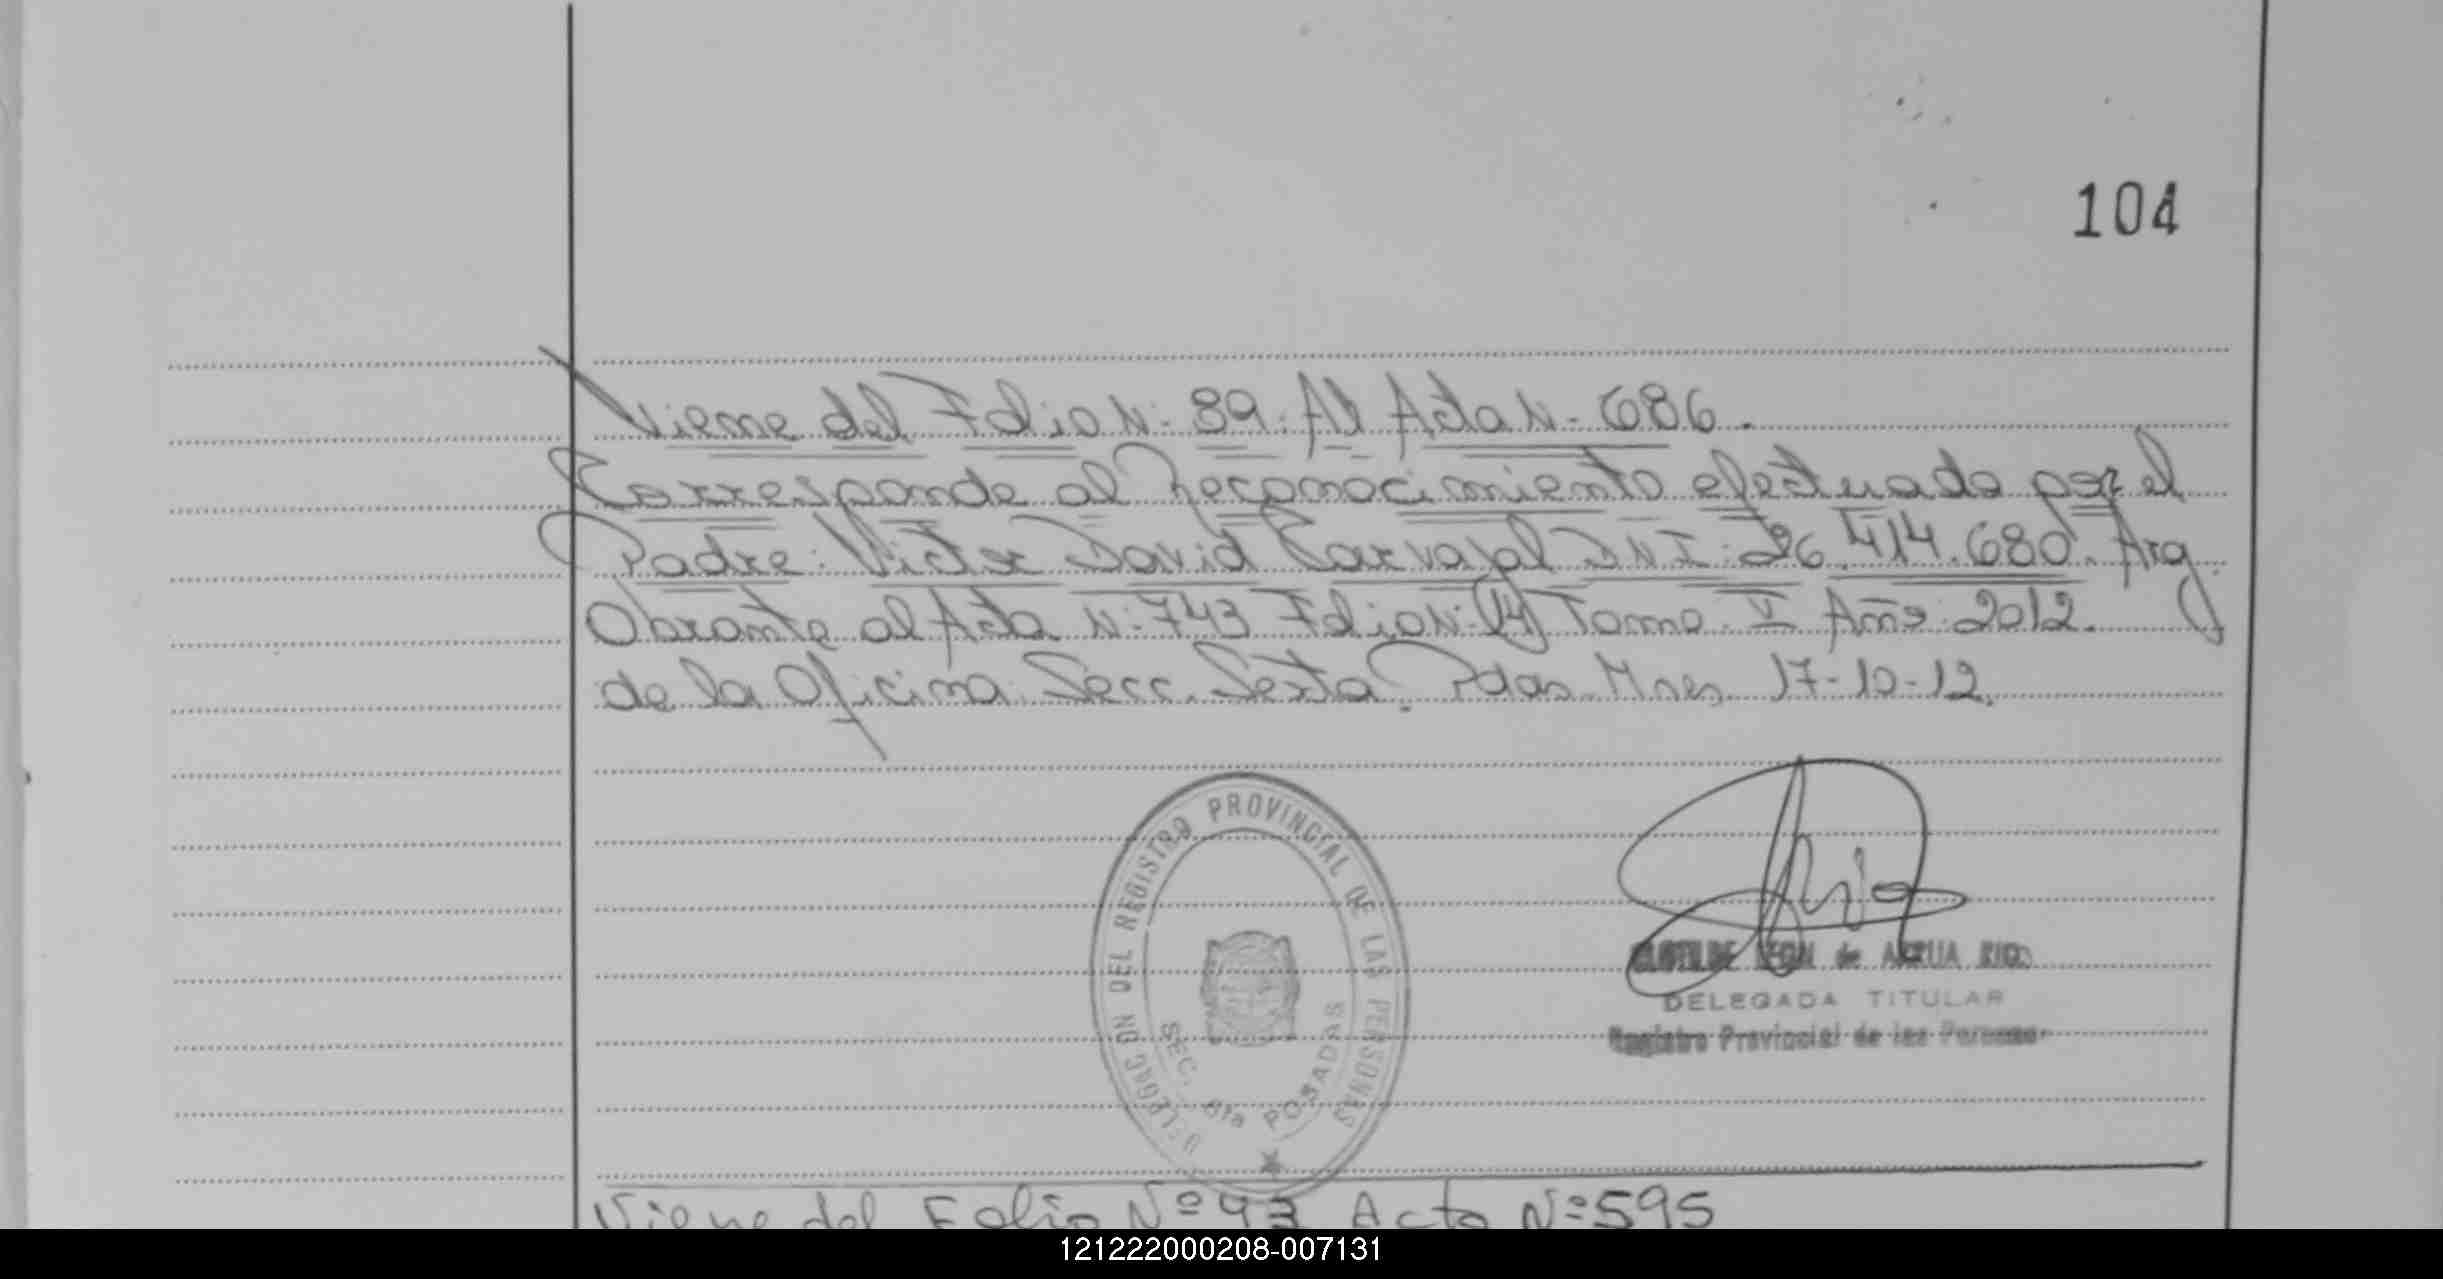 104
Viene del Folio N: 89: Al Acta N- 686.
Corresponde al Reconocimiento efectuado por el
Padre: Victor David Carvajal D N I: 26.414.680. Arg.
Obrante al Acta N: 743 Folio N: 147 Tomo: V Año: 2012.
de la Oficina: Secc. Sexta. Pdas. Mnes 17-10-12.
DELEGACION DEL REGISTRO PROVINCIAL DE LAS PERSONAS
SEC. 6ta POSADAS
de ARRUA
DELEGADA TITULAR
Registro Provincial de las Personas
Viene del Folio Nº 93 Acta Nº 595
121222000208-007131